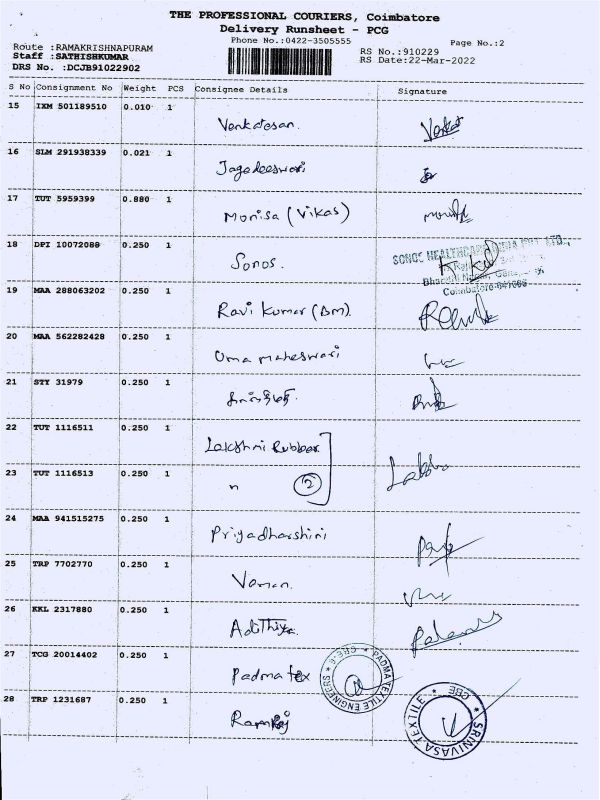 THE PROFESSIONAL COURIERS, Coimbatore
Delivery Runsheet - PCG
Phone No.:0422-3505555
Page No.:2
Route :RAMAKRISHNAPURAM
Staff :SATHISHKUMAR
DRS No. :DCJB91022902
RS No.:910229
RS Date:22-Mar-2022
S No Consignment No Weight PCS Consignee Details Signature
15 IXM 501189510 0.010 1 Venkatesan.
16 SLM 291938339 0.021 1 Jagadeeswari
17 TUT 5959399 0.880 1 Monisa (Vikas)
18 DPI 10072088 0.250 1 Sonos.
SONIC HEALTHCARE INDIA PVT. LTD.,
Coimbatore-641006
19 MAA 288063202 0.250 1 Ravi Kumar (Bm)
20 MAA 562282428 0.250 1 Uma maheswari
21 STY 31979 0.250 1
22 TUT 1116511 0.250 1 Lakshmi Rubber
23 TUT 1116513 0.250 1 " 2
24 MAA 941515275 0.250 1 Priyadharshini
25 TRP 7702770 0.250 1 Vaman.
26 KKL 2317880 0.250 1 Adithiya
27 TCG 20014402 0.250 1 Padma tex
PADMA TEXTILE ENGINEERS CBE-6
28 TRP 1231687 0.250 1 Ramraj
SRINIVASA TEXTILE CBE